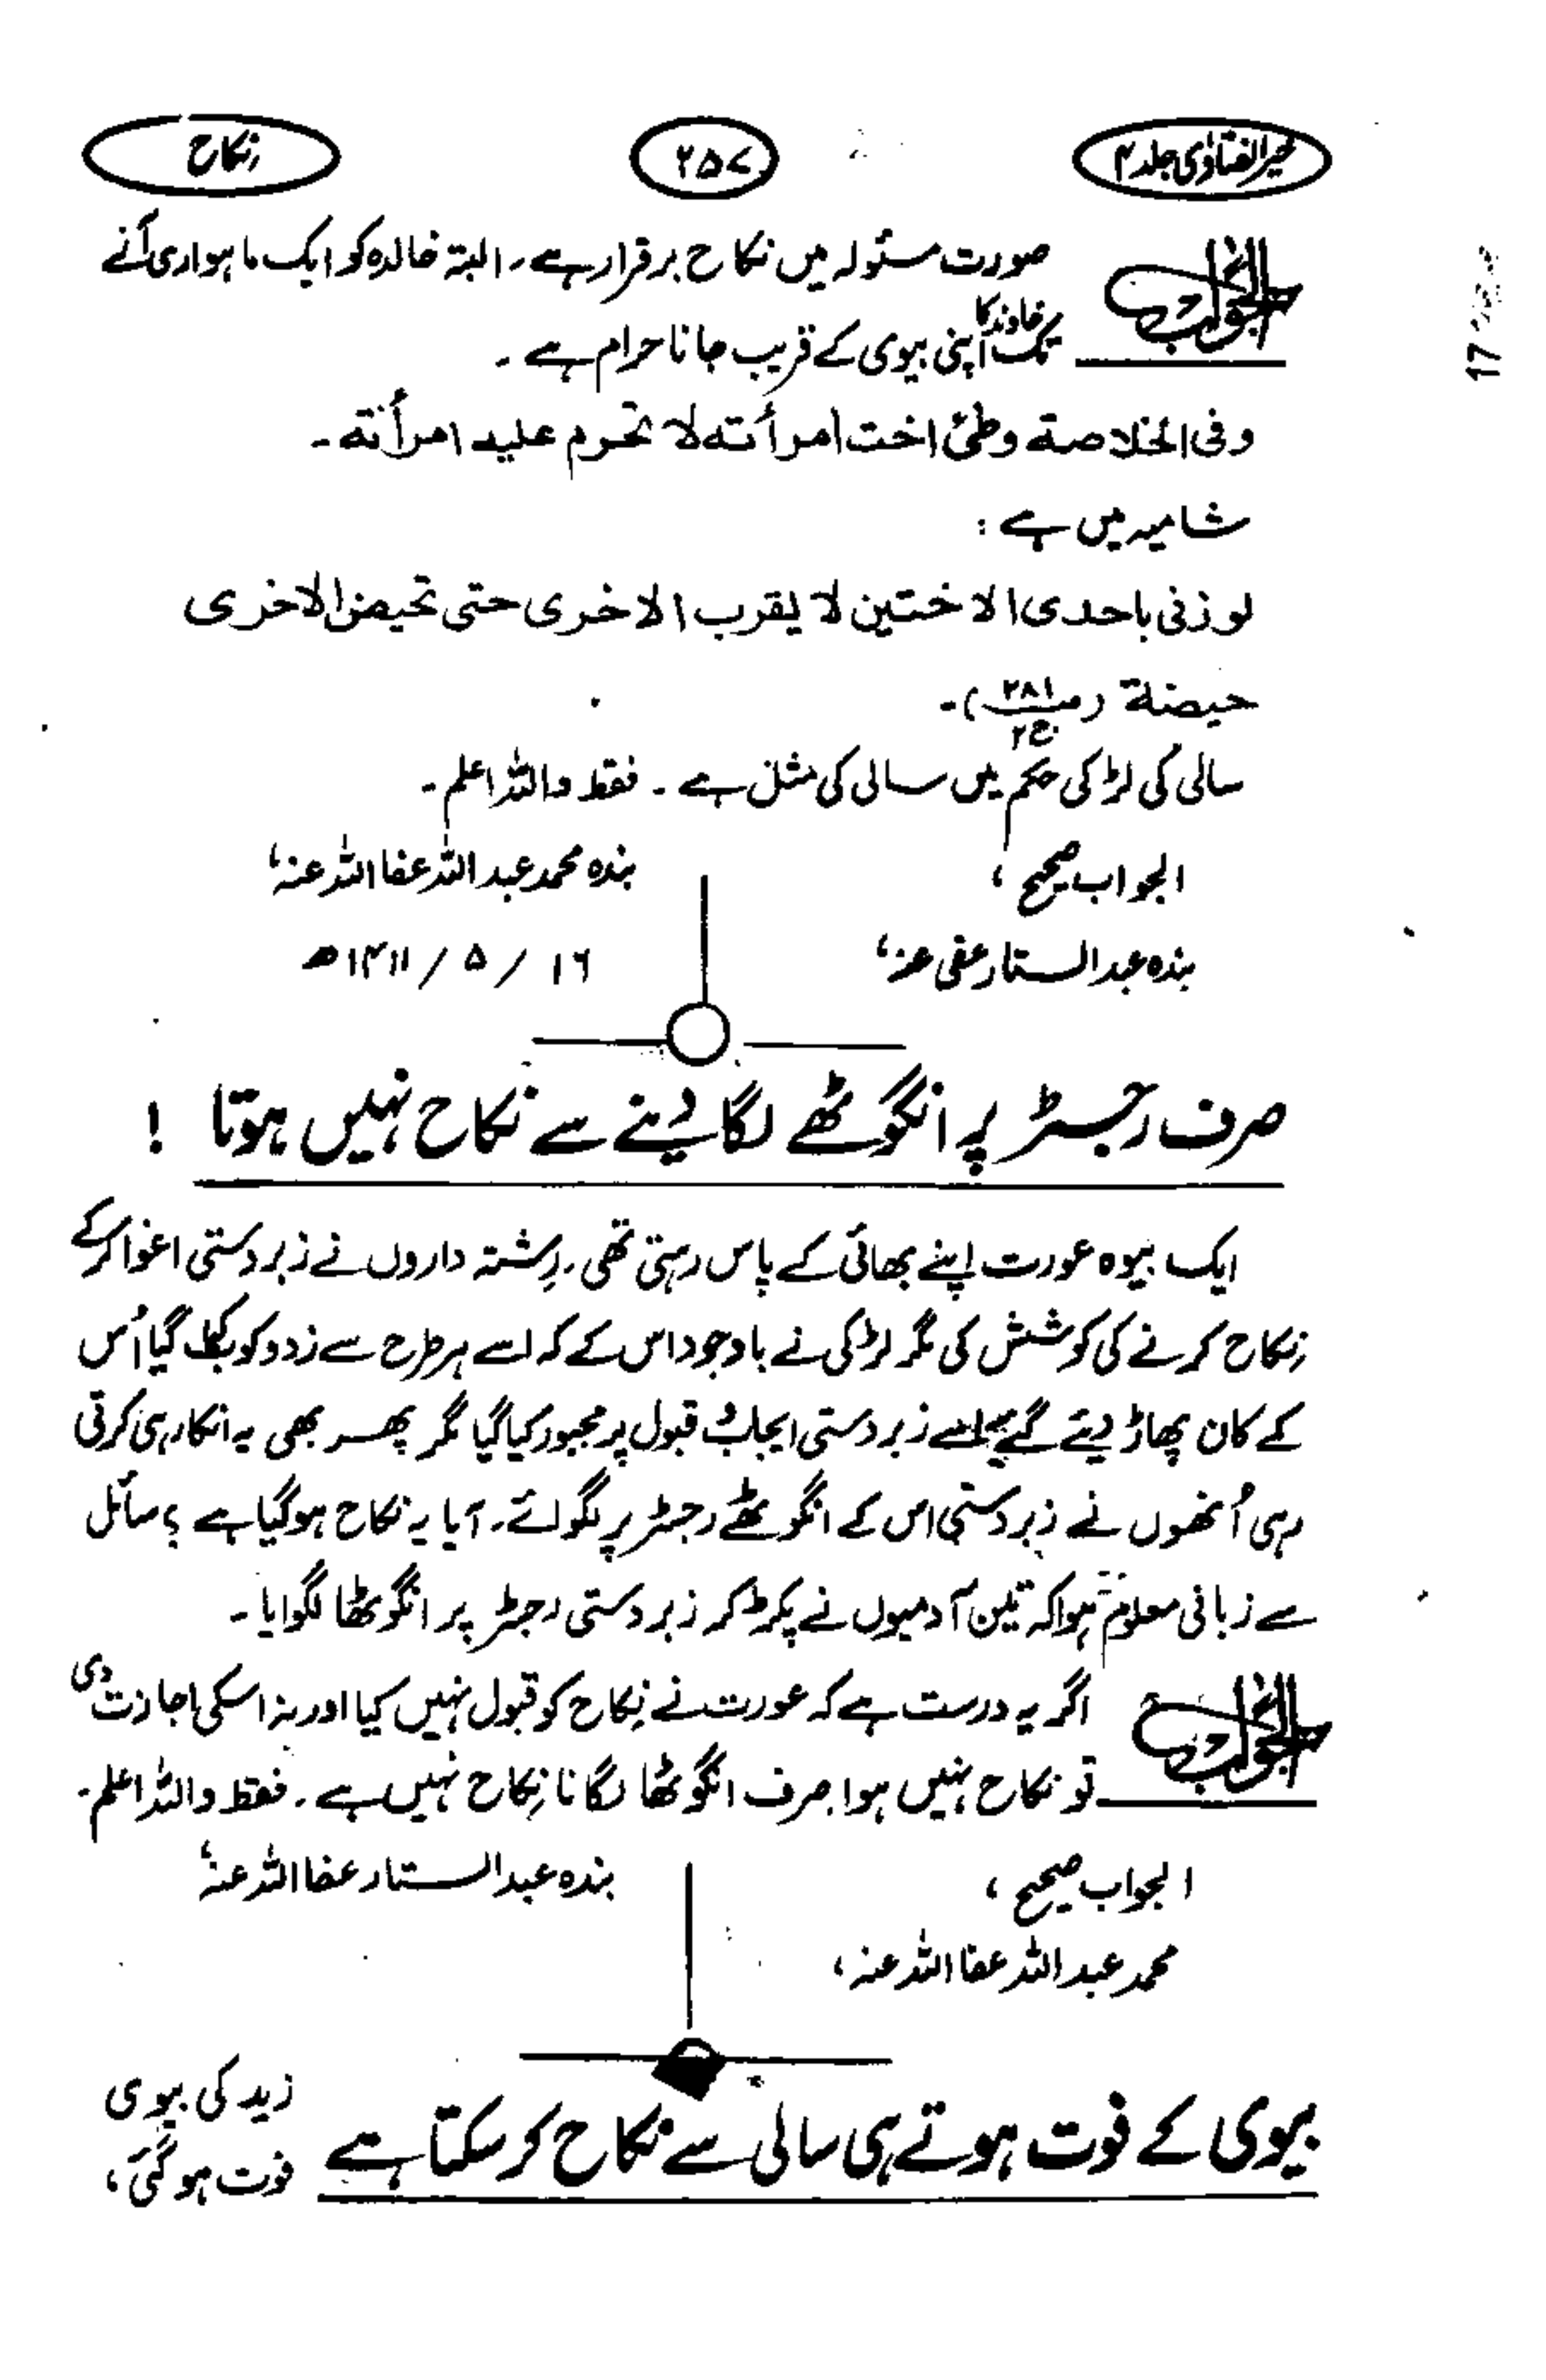 خیر الفتاویٰ جلد ۴
۲۵۷
نکاح
الجواب صورت مسئولہ میں نکاح برقرار ہے۔ البتہ خالدہ کو ایک ماہواری آنے
تک خاوند کا اپنی بیوی کے قریب جانا حرام ہے۔
وفی الخلاصة وطئ اخت امرأته لا تحرم علیہ امرأتہ۔
شامیہ میں ہے:
لو زنی باحدی الاختین لا یقرب الاخری حتی تحیض الاخری
حیضة (ص۲۸۱ ج۲)۔
سالی کی لڑکی حکم میں سالی کی مثل ہے۔ فقط واللہ اعلم۔
الجواب صحیح، بندہ محمد عبداللہ عفا اللہ عنہ،
بندہ عبدالستار عفی عنہ، ۱۶ / ۵ / ۱۴۱۱ھ
صرف رجسٹر پر انگوٹھے لگا دینے سے نکاح نہیں ہوتا !
ایک بیوہ عورت اپنے بھائی کے پاس رہتی تھی۔ رشتہ داروں نے زبردستی اغوا کر کے
نکاح کرنے کی کوشش کی مگر لڑکی نے باوجود اس کے کہ اسے ہر طرح سے زدوکوب کیا گیا اُس
کے کان پھاڑ دیئے گئے اسے زبردستی ایجاب و قبول پر مجبور کیا گیا مگر پھر بھی یہ انکار ہی کرتی
رہی اُنھوں نے زبردستی اس کے انگوٹھے رجسٹر پر لگوائے۔ آیا یہ نکاح ہو گیا ہے ؟ سائل
سے زبانی معلوم ہوا کہ تین آدمیوں نے پکڑ کر زبردستی رجسٹر پر انگوٹھا لگوایا۔
الجواب اگر یہ درست ہے کہ عورت نے نکاح کو قبول نہیں کیا اور نہ اسکی اجازت دی
تو نکاح نہیں ہوا۔ صرف انگوٹھا لگانا نکاح نہیں ہے۔ فقط واللہ اعلم۔
الجواب صحیح، بندہ عبدالستار عفا اللہ عنہ
محمد عبداللہ عفا اللہ عنہ،
بیوی کے فوت ہوتے ہی سالی سے نکاح کر سکتا ہے
زید کی بیوی
فوت ہو گئی،
17